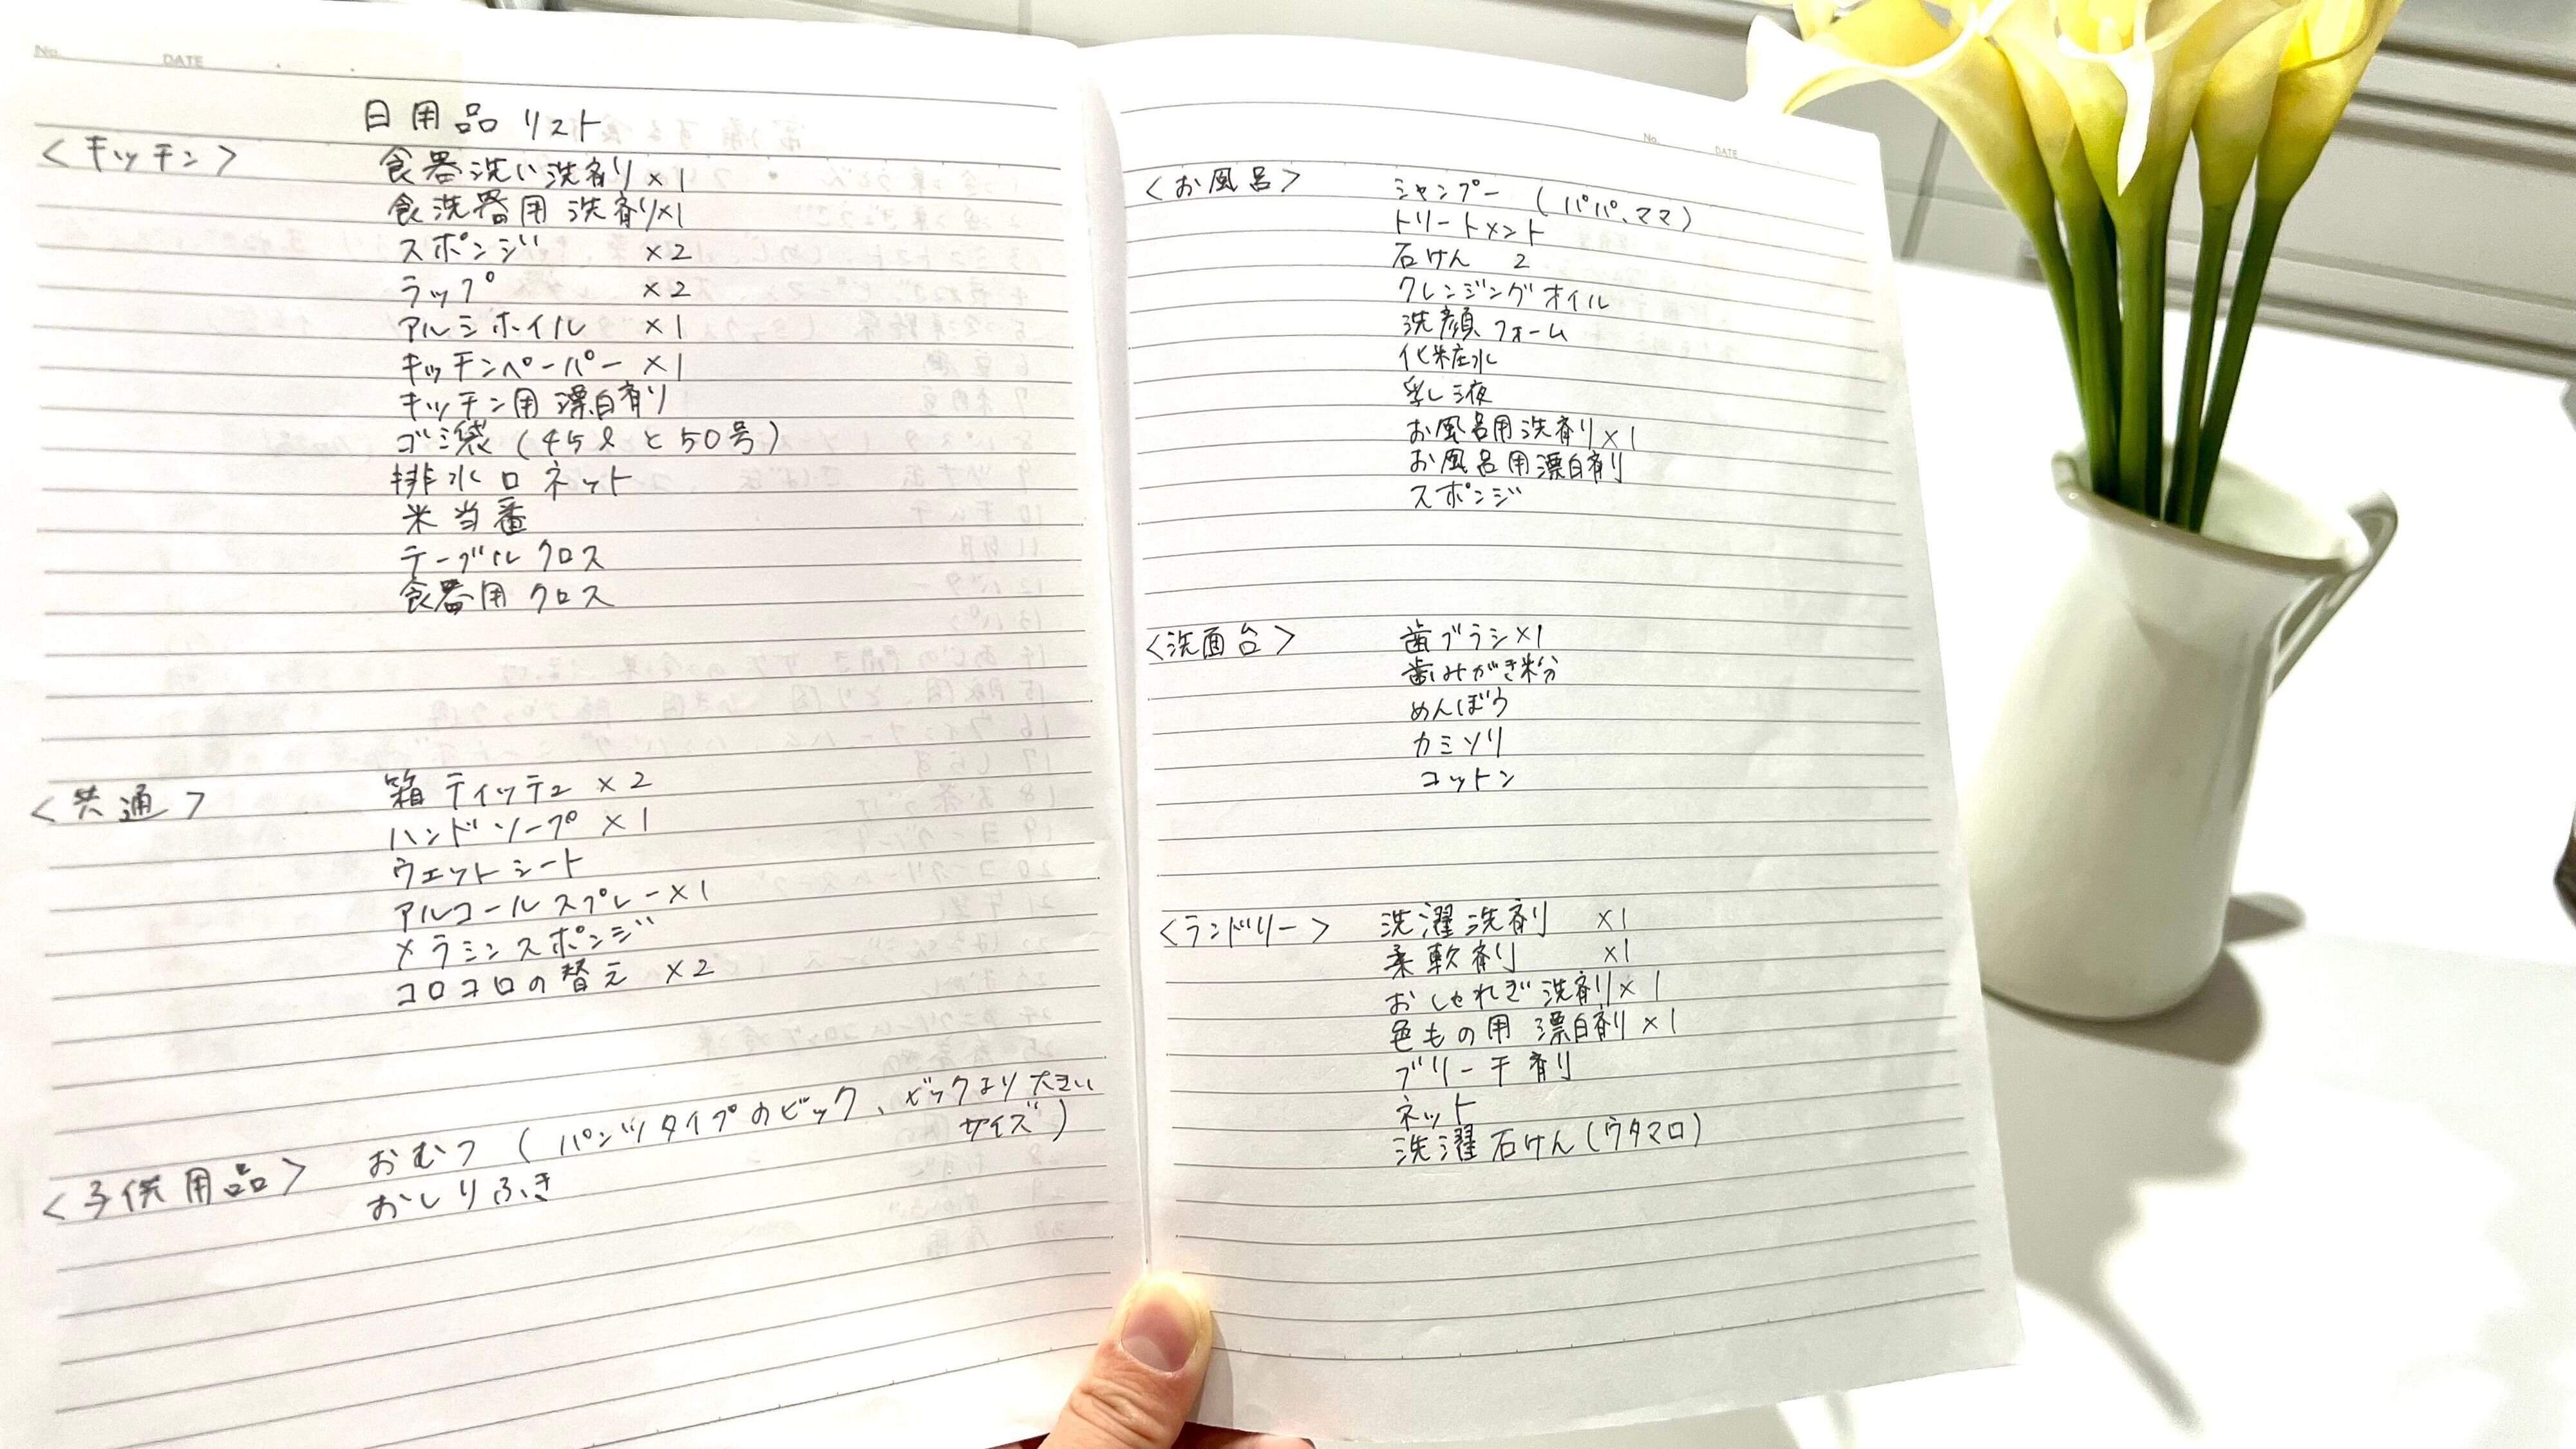 No.
DATE
日用品リスト
<キッチン>
食器洗い洗剤×1
食洗器用洗剤×1
スポンジ ×2
ラップ ×2
アルミホイル ×1
キッチンペーパー ×1
キッチン用漂白剤
ゴミ袋(45ℓと50号)
排水口ネット
米当番
テーブルクロス
食器用クロス
<共通>
箱ティッテュ ×2
ハンドソープ ×1
ウェットシート
アルコールスプレー×1
メラミンスポンジ
コロコロの替え ×2
<子供用品>
おむつ(パンツタイプのビック、ビックより大きい
サイズ)
おしりふき
No.
DATE
<お風呂>
シャンプー(パパ、ママ)
トリートメント
石けん 2
クレンジングオイル
洗顔フォーム
化粧水
乳液
お風呂用洗剤×1
お風呂用漂白剤
スポンジ
<洗面台>
歯ブラシ×1
歯みがき粉
めんぼう
カミソリ
コットン
<ランドリー>
洗濯洗剤 ×1
柔軟剤 ×1
おしゃれぎ洗剤×1
色もの用漂白剤×1
ブリーチ剤
ネット
洗濯石けん(ウタマロ)